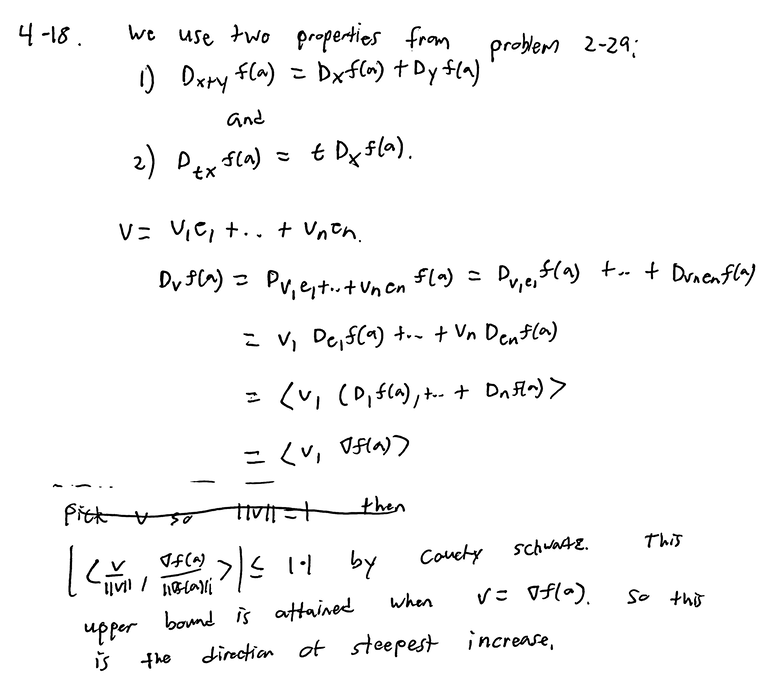 4-18. We use two properties from problem 2-29:
1) D_{x+y} f(a) = D_x f(a) + D_y f(a)
and
2) D_{tx} f(a) = t D_x f(a).
V = V_1 e_1 + .. + V_n e_n.
D_v f(a) = D_{v_1 e_1 + .. + v_n e_n} f(a) = D_{v_1 e_1} f(a) + .. + D_{v_n e_n} f(a)
= v_1 D_{e_1} f(a) + ... + v_n D_{e_n} f(a)
= < v, (D_1 f(a), + .. + D_n f(a) >
= < v, ∇f(a) >
Pick v so ||v|| = 1 then
| < v/||v||, ∇f(a)/||∇f(a)|| > | ≤ 1·1 by Cauchy Schwartz. This
upper bound is attained when v = ∇f(a). So this
is the direction of steepest increase.